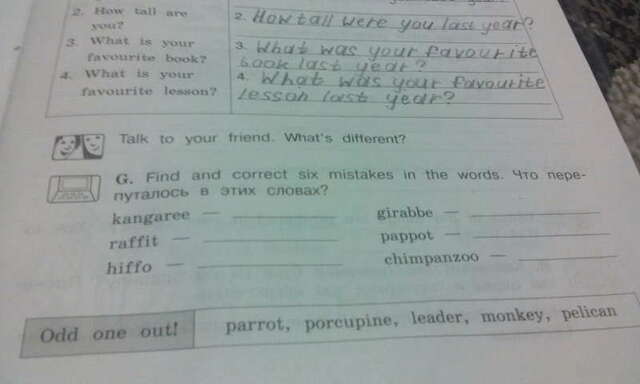 2. How tall are you?
2. How tall were you last year?
3. What is your favourite book?
3. What was your favourite book last year?
4. What is your favourite lesson?
4. What was your favourite lesson last year?
Talk to your friend. What's different?
G. Find and correct six mistakes in the words. Что пере-
путалось в этих словах?
kangaree —
girabbe —
raffit —
pappot —
hiffo —
chimpanzoo —
Odd one out!
parrot, porcupine, leader, monkey, pelican